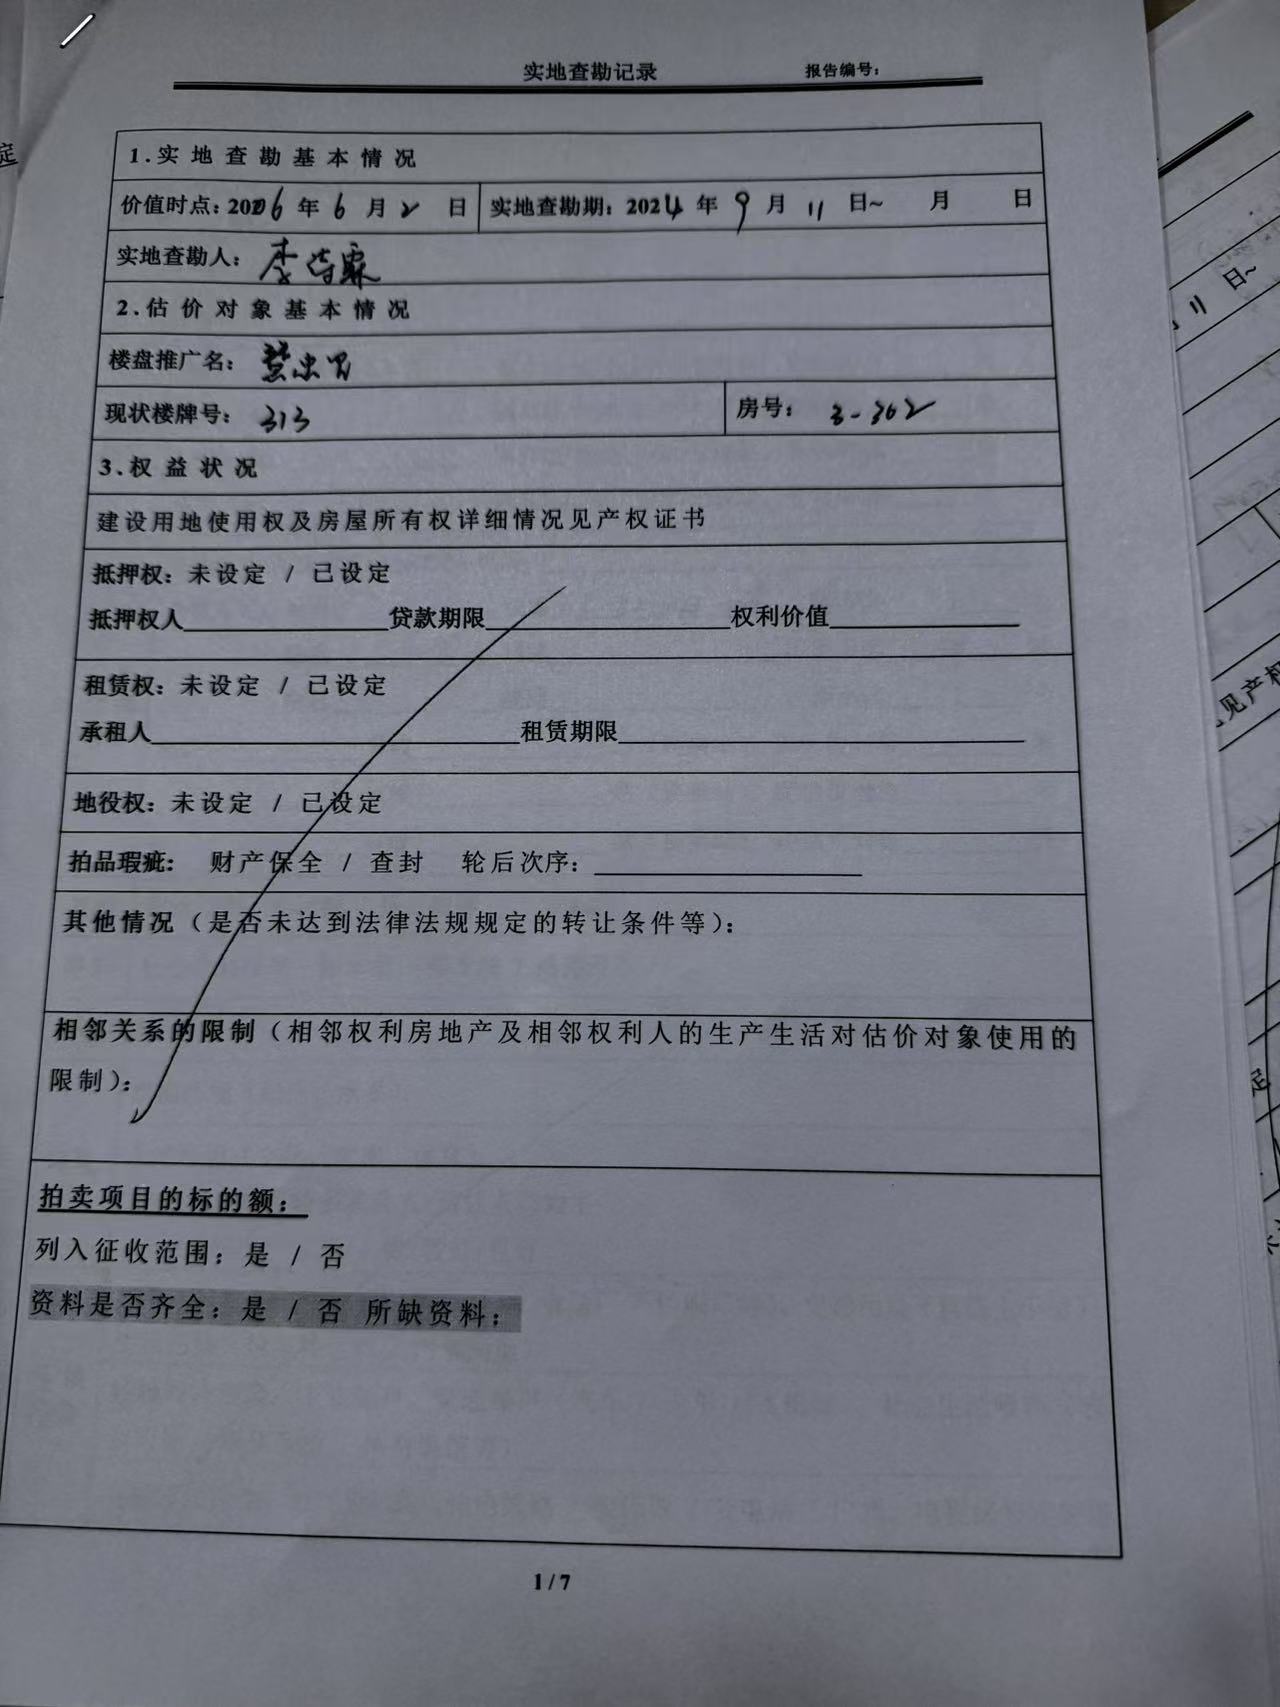 实地查勘记录 报告编号：
1.实地查勘基本情况
价值时点：2006年6月2日 实地查勘期：2024年9月11日~ 月 日
实地查勘人：李诗霖
2.估价对象基本情况
楼盘推广名：慧忠里
现状楼牌号：313 房号：3-302
3.权益状况
建设用地使用权及房屋所有权详细情况见产权证书
抵押权：未设定 / 已设定
抵押权人 贷款期限 权利价值
租赁权：未设定 / 已设定
承租人 租赁期限
地役权：未设定 / 已设定
拍品瑕疵： 财产保全 / 查封 轮后次序：
其他情况（是否未达到法律法规规定的转让条件等）：
相邻关系的限制（相邻权利房地产及相邻权利人的生产生活对估价对象使用的
限制）：
拍卖项目的标的额：
列入征收范围：是 / 否
资料是否齐全：是 / 否 所缺资料：
1/7
定
11日~
见产权